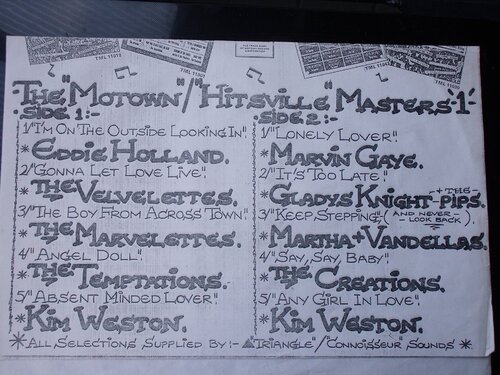 TML 11019
TML 11007
The "Motown"/"Hitsville" Masters '1'
Side 1:-
1/"I'm On The Outside Looking In".
*Eddie Holland.
2/"Gonna Let Love Live".
*The Velvelettes.
3/"The Boy From Across Town"
*The Marvelettes.
4/"Angel Doll".
*The Temptations.
5/"Absent Minded Lover".
*Kim Weston.
Side 2:-
1/"Lonely Lover".
*Marvin Gaye.
2/"It's Too Late".
*Gladys Knight + the - Pips.
3/"Keep Stepping". (And Never - Look Back).
*Martha + Vandellas.
4/"Say, Say, Baby".
*The Creations.
5/"Any Girl In Love".
*Kim Weston.
*All Selections Supplied By:- "Triangle"/"Connoisseur" Sounds *